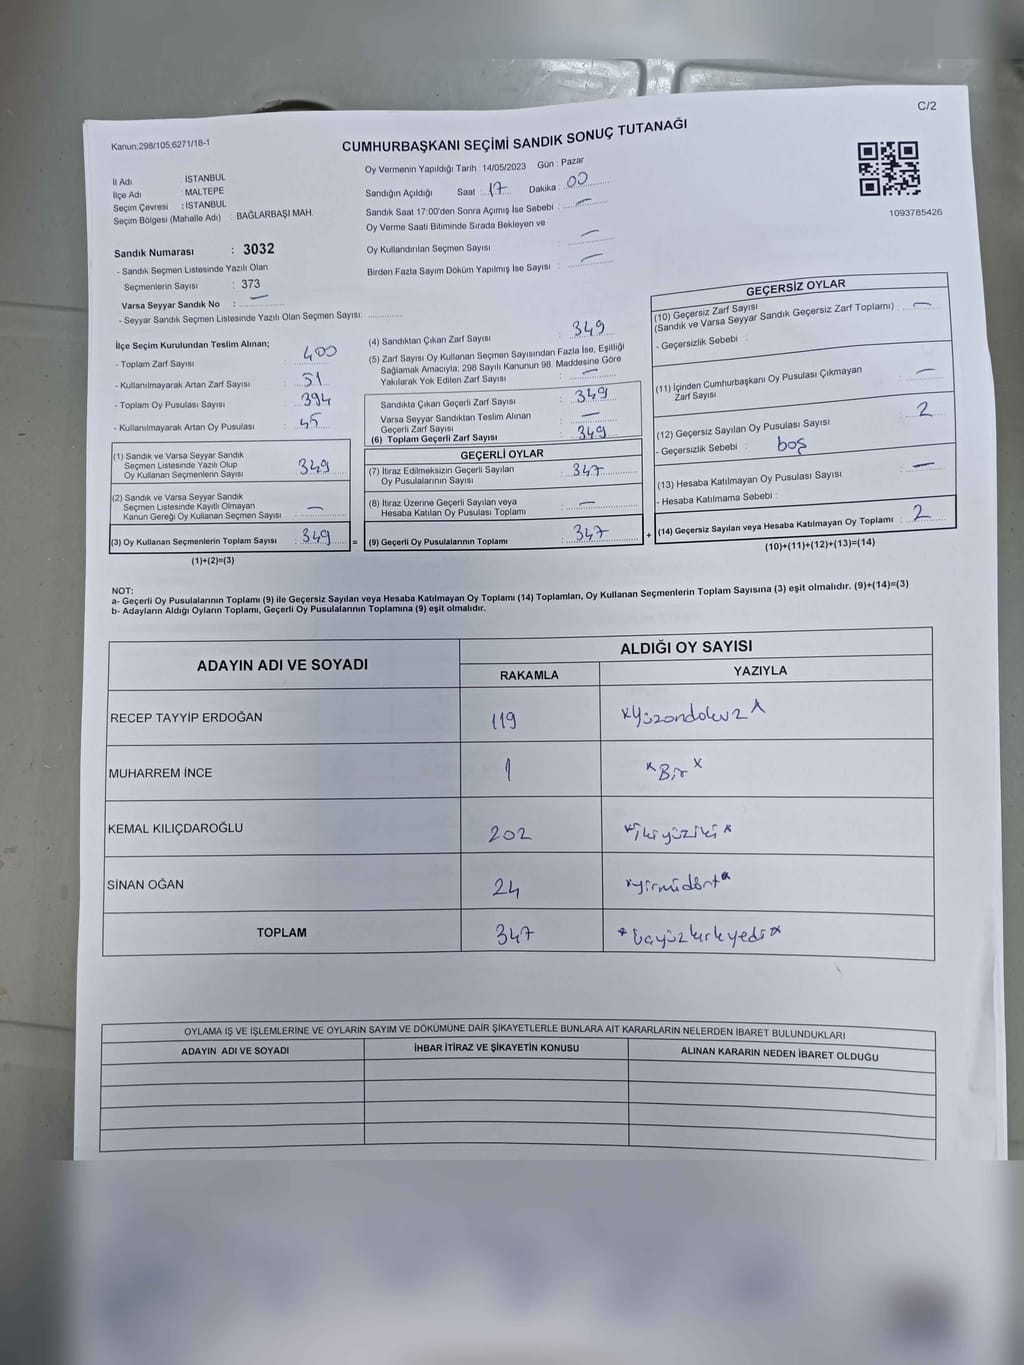 C/2
Kanun;298/105,6271/18-1
CUMHURBAŞKANI SEÇİMİ SANDIK SONUÇ TUTANAĞI
Oy Vermenin Yapıldığı Tarih : 14/05/2023 Gün : Pazar
İl Adı : İSTANBUL
İlçe Adı : MALTEPE
Seçim Çevresi : İSTANBUL
Seçim Bölgesi (Mahalle Adı) : BAĞLARBAŞI MAH.
Sandığın Açıldığı Saat : 17 Dakika : 00
Sandık Saat 17:00'den Sonra Açımış İse Sebebi : —
Oy Verme Saati Bitiminde Sırada Bekleyen ve
Oy Kullandırılan Seçmen Sayısı : —
Birden Fazla Sayım Döküm Yapılmış İse Sayısı : —
1093785426
Sandık Numarası : 3032
- Sandık Seçmen Listesinde Yazılı Olan
Seçmenlerin Sayısı : 373
Varsa Seyyar Sandık No : —
- Seyyar Sandık Seçmen Listesinde Yazılı Olan Seçmen Sayısı:
İlçe Seçim Kurulundan Teslim Alınan;
- Toplam Zarf Sayısı : 400
- Kullanılmayarak Artan Zarf Sayısı : 51
- Toplam Oy Pusulası Sayısı : 394
- Kullanılmayarak Artan Oy Pusulası : 45
(1) Sandık ve Varsa Seyyar Sandık
Seçmen Listesinde Yazılı Olup
Oy Kullanan Seçmenlerin Sayısı : 349
(2) Sandık ve Varsa Seyyar Sandık
Seçmen Listesinde Kayıtlı Olmayan
Kanun Gereği Oy Kullanan Seçmen Sayısı : —
(3) Oy Kullanan Seçmenlerin Toplam Sayısı : 349 =
(1)+(2)=(3)
(4) Sandıktan Çıkan Zarf Sayısı : 349
(5) Zarf Sayısı Oy Kullanan Seçmen Sayısından Fazla İse, Eşitliği
Sağlamak Amacıyla; 298 Sayılı Kanunun 98. Maddesine Göre
Yakılarak Yok Edilen Zarf Sayısı : —
Sandıkta Çıkan Geçerli Zarf Sayısı : 349
Varsa Seyyar Sandıktan Teslim Alınan
Geçerli Zarf Sayısı : —
(6) Toplam Geçerli Zarf Sayısı : 349
GEÇERLİ OYLAR
(7) İtiraz Edilmeksizin Geçerli Sayılan
Oy Pusulalarının Sayısı : 347
(8) İtiraz Üzerine Geçerli Sayılan veya
Hesaba Katılan Oy Pusulası Toplamı : —
(9) Geçerli Oy Pusulalarının Toplamı : 347 +
GEÇERSİZ OYLAR
(10) Geçersiz Zarf Sayısı
(Sandık ve Varsa Seyyar Sandık Geçersiz Zarf Toplamı) : —
- Geçersizlik Sebebi :
(11) İçinden Cumhurbaşkanı Oy Pusulası Çıkmayan
Zarf Sayısı : —
(12) Geçersiz Sayılan Oy Pusulası Sayısı : 2
- Geçersizlik Sebebi : boş
(13) Hesaba Katılmayan Oy Pusulası Sayısı : —
- Hesaba Katılmama Sebebi :
(14) Geçersiz Sayılan veya Hesaba Katılmayan Oy Toplamı : 2
(10)+(11)+(12)+(13)=(14)
NOT:
a- Geçerli Oy Pusulalarının Toplamı (9) ile Geçersiz Sayılan veya Hesaba Katılmayan Oy Toplamı (14) Toplamları, Oy Kullanan Seçmenlerin Toplam Sayısına (3) eşit olmalıdır. (9)+(14)=(3)
b- Adayların Aldığı Oyların Toplamı, Geçerli Oy Pusulalarının Toplamına (9) eşit olmalıdır.
ADAYIN ADI VE SOYADI ALDIĞI OY SAYISI
RAKAMLA YAZIYLA
RECEP TAYYİP ERDOĞAN 119 xYüzondokuzx
MUHARREM İNCE 1 xBirx
KEMAL KILIÇDAROĞLU 202 xikiyüzikix
SİNAN OĞAN 24 xyirmidörtx
TOPLAM 347 xüçyüzkırkyedix
OYLAMA İŞ VE İŞLEMLERİNE VE OYLARIN SAYIM VE DÖKÜMÜNE DAİR ŞİKAYETLERLE BUNLARA AİT KARARLARIN NELERDEN İBARET BULUNDUKLARI
ADAYIN ADI VE SOYADI İHBAR İTİRAZ VE ŞİKAYETİN KONUSU ALINAN KARARIN NEDEN İBARET OLDUĞU